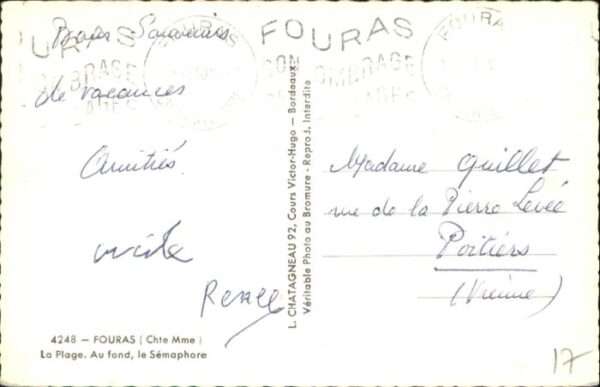 FOURAS
FOURAS
OMBRAGE
Bons Souvenirs
de vacances
Amitiés
Renée
4248 — FOURAS (Chte Mme)
La Plage. Au fond, le Sémaphore
L. CHATAGNEAU 92, Cours Victor-Hugo — Bordeaux
Véritable Photo au Bromure - Reprod. Interdite
Madame Guillet
rue de la Pierre Levée
Poitiers
(Vienne)
17